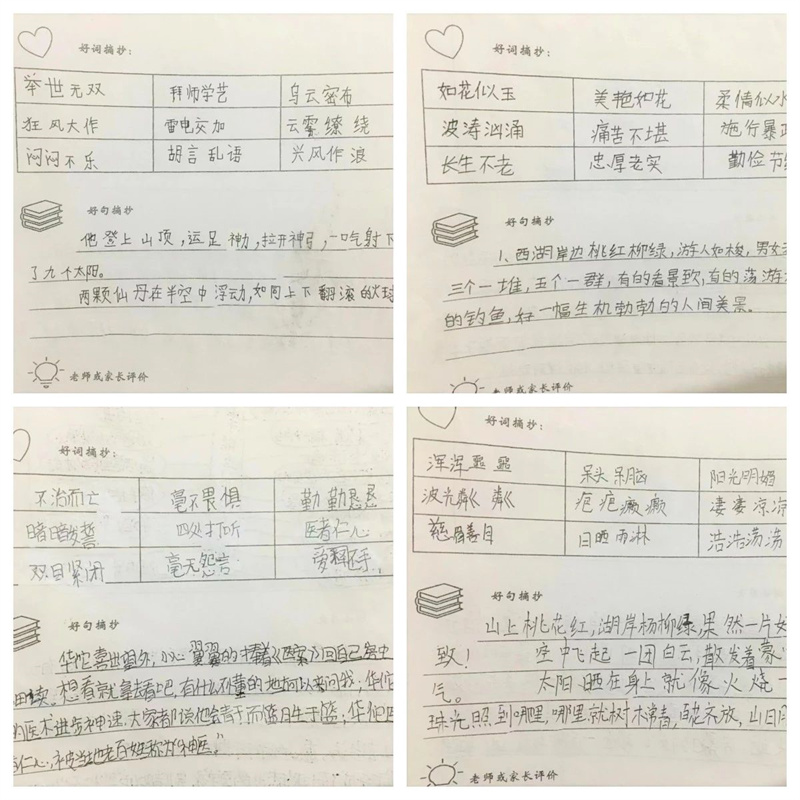 好词摘抄:
举世无双 拜师学艺 乌云密布
狂风大作 雷电交加 云雾缭绕
闷闷不乐 胡言乱语 兴风作浪
好句摘抄
他登上山顶,运足神力,拉开神弓,一口气射下
了九个太阳。
两颗仙丹在半空中浮动,如同上下翻滚的火球
老师或家长评价
好词摘抄:
如花似玉 美艳如花 柔情似水
波涛汹涌 痛苦不堪 施行暴
长生不老 忠厚老实 勤俭节
好句摘抄
1、西湖岸边桃红柳绿,游人如梭,男女
三个一堆,五个一群,有的看景致,有的荡游
的钓鱼,好一幅生机勃勃的人间美景。
老师或家长评价
好词摘抄:
不治而亡 毫不畏惧 勤勤恳恳
暗暗发誓 四处打听 医者仁心
双目紧闭 毫无怨言 爱不释手
好句摘抄
华佗喜出望外,小心翼翼的捧着《西
想看就拿去看吧,有什么不懂的地方可以来问我;华佗
医术进步神速,大家都说他会青于
仁心,被当地老百姓称为“神医”
好词摘抄:
浑浑噩噩 呆头呆脑 阳光明媚
波光粼粼 疤疤癞癞 凄凄凉凉
慈眉善目 日晒雨淋 浩浩荡荡
好句摘抄
山上桃花红,湖岸杨柳绿,果然一片好
致! 空中飞起一团白云,散发着
气。 太阳晒在身上就像火烧一
珠光照到哪里,哪里就树木常青,百花齐放,山
老师或家长评价